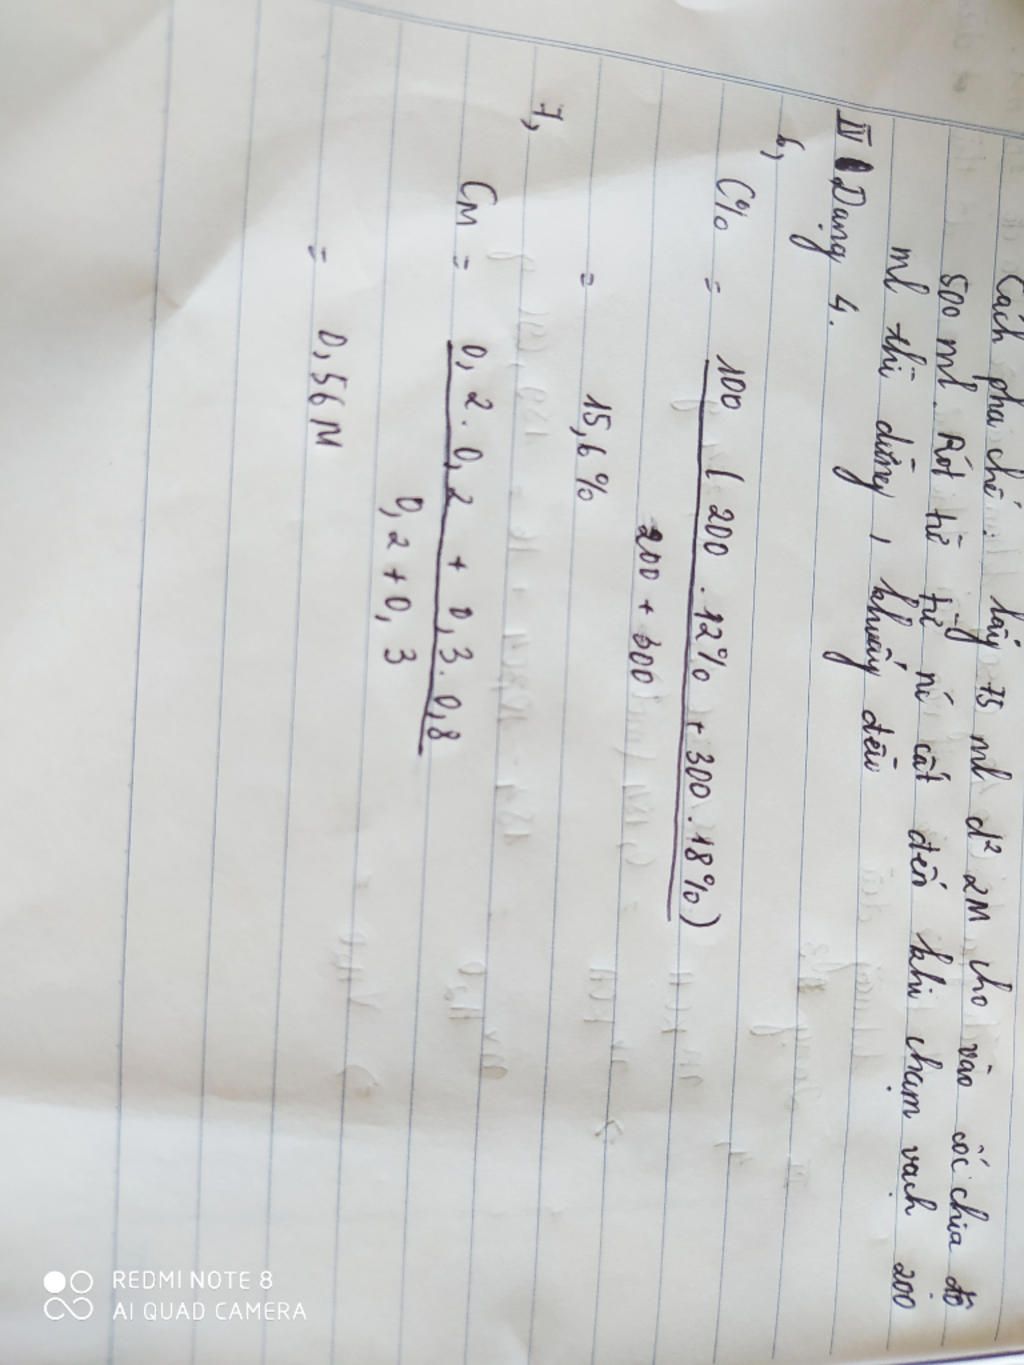 Cách pha chế: lấy 75 ml d² 2M cho vào cốc chia độ
500 ml. Rót từ từ nc cất đến khi chạm vạch 200
ml thì dừng, khuấy đều
IV Dạng 4.
6,
C% = 100 (200 . 12% + 300 . 18%)
200 + 300
= 15,6%
7,
CM = 0,2 . 0,2 + 0,3 . 0,8
0,2 + 0,3
= 0,56 M
REDMI NOTE 8
AI QUAD CAMERA